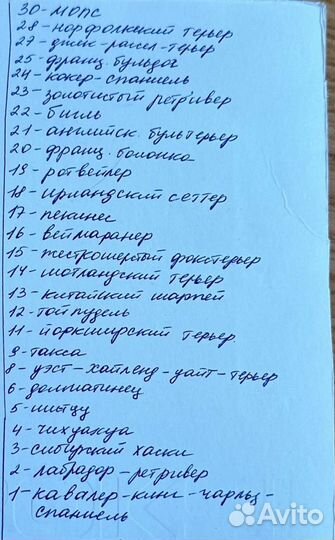 30-МОПС
28-норфолкский терьер
27-джек-рассел-терьер
25-франц. бульдог
24-кокер-спаниель
23-золотистый ретривер
22-бигль
21-английск. бультерьер
20-франц. болонка
19-ротвейлер
18-ирландский сеттер
17-пекинес
16-веймаранер
15-жесткошерстый фокстерьер
14-шотландский терьер
13-китайский шарпей
12-той пудель
11-йоркширский терьер.
9-такса
8-уэст-хайленд-уайт-терьер
6-долматинец
5-шитцу
4-чихуахуа
3-сибирский хаски
2-лабрадор-ретривер
1-кавалер-кинг-чарльз-
спаниель
Avito